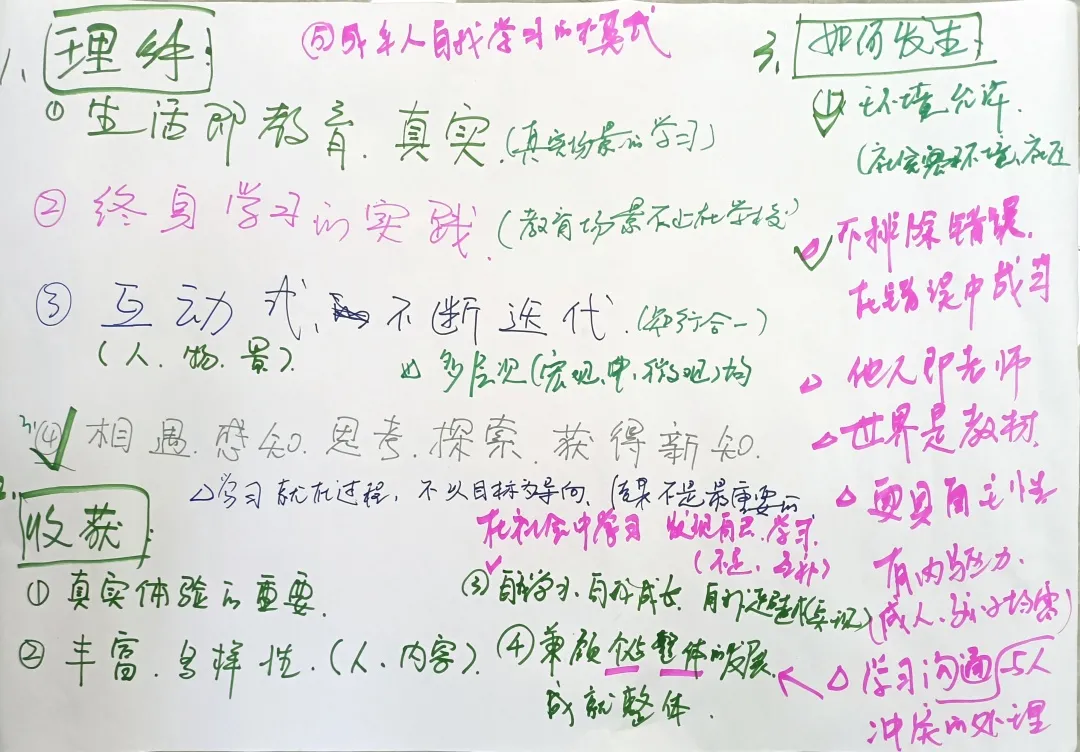 1、理解:
⑤成年人自我学习的模式
①生活即教育.真实.(真实场景的学习)
②终身学习的实践.(教育场景不止在学校)
③互动式、不断迭代.(知行合一)
(人.物.景).
多层次(宏观、中、微观)均
④相遇.感知.思考.探索.获得新知.
△学习就在过程,不以目标为导向、结果不是最重要的
2、收获:
在社会中学习 发现自己.学习.
(不足、互补)
①真实体验的重要.
②丰富.多样性.(人、内容).
③自我学习、自我成长、自我
④兼顾个体整体的发展.
成就整体.
3、如何发生:
①环境允许.
不排除错误.
在错误中成
△他人即老师
△世界是教材.
△自主性
有内驱力.
△学习沟通 与人
冲突的处理